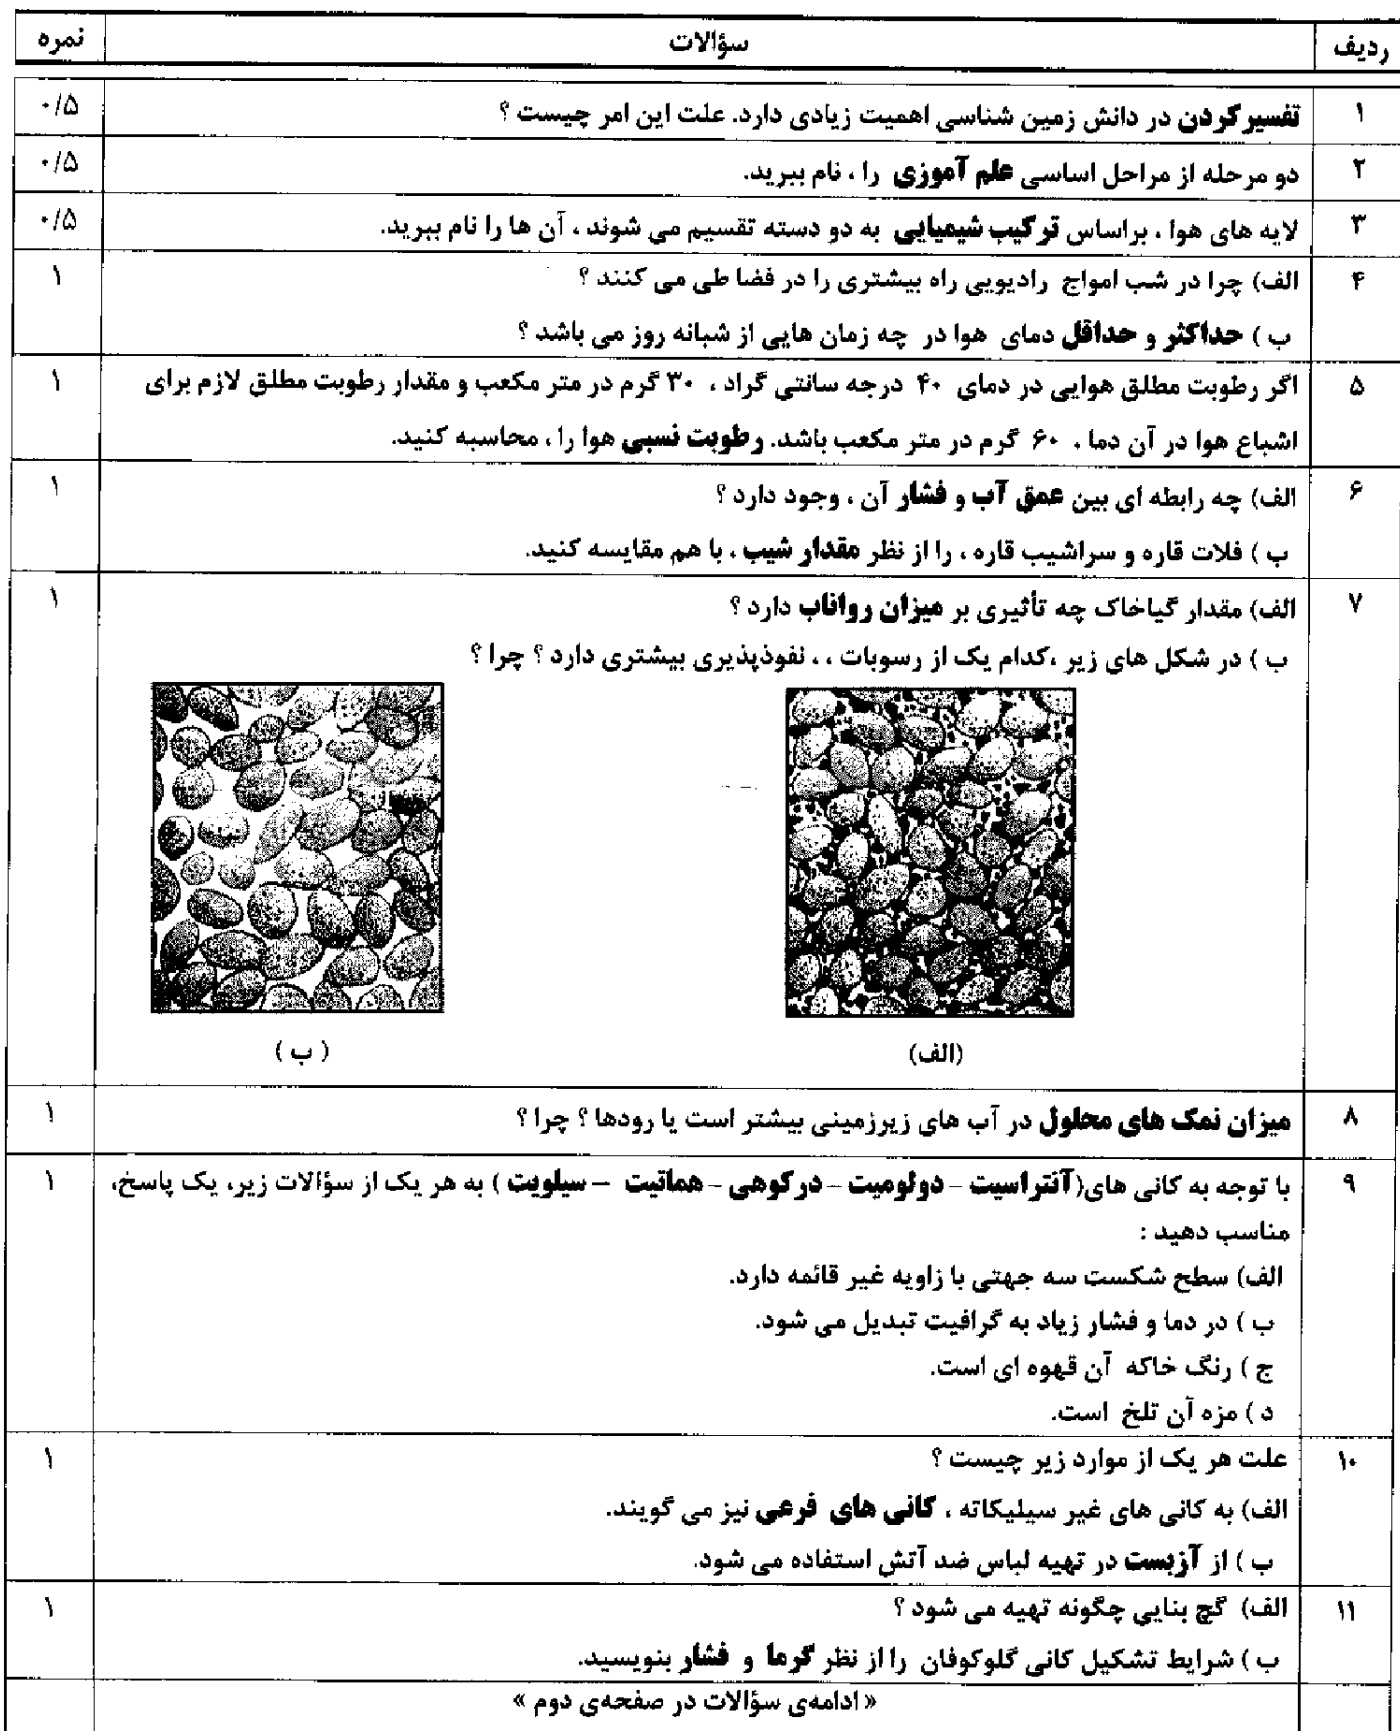 ردیف سؤالات نمره
۱ تفسیرکردن در دانش زمین شناسی اهمیت زیادی دارد. علت این امر چیست ؟ ۰/۵
۲ دو مرحله از مراحل اساسی علم آموزی را ، نام ببرید. ۰/۵
۳ لایه های هوا ، براساس ترکیب شیمیایی به دو دسته تقسیم می شوند ، آن ها را نام ببرید. ۰/۵
۴ الف) چرا در شب امواج رادیویی راه بیشتری را در فضا طی می کنند ؟ ۱
ب ) حداکثر و حداقل دمای هوا در چه زمان هایی از شبانه روز می باشد ؟
۵ اگر رطوبت مطلق هوایی در دمای ۴۰ درجه سانتی گراد ، ۳۰ گرم در متر مکعب و مقدار رطوبت مطلق لازم برای ۱
اشباع هوا در آن دما ، ۶۰ گرم در متر مکعب باشد. رطوبت نسبی هوا را ، محاسبه کنید.
۶ الف) چه رابطه ای بین عمق آب و فشار آن ، وجود دارد ؟ ۱
ب ) فلات قاره و سراشیب قاره ، را از نظر مقدار شیب ، با هم مقایسه کنید.
۷ الف) مقدار گیاخاک چه تأثیری بر میزان رواناب دارد ؟ ۱
ب ) در شکل های زیر ،کدام یک از رسوبات ، ، نفوذپذیری بیشتری دارد ؟ چرا ؟
(الف) ( ب )
۸ میزان نمک های محلول در آب های زیرزمینی بیشتر است یا رودها ؟ چرا ؟ ۱
۹ با توجه به کانی های(آنتراسیت – دولومیت – درکوهی – هماتیت – سیلویت ) به هر یک از سؤالات زیر، یک پاسخ، ۱
مناسب دهید :
الف) سطح شکست سه جهتی با زاویه غیر قائمه دارد.
ب ) در دما و فشار زیاد به گرافیت تبدیل می شود.
ج ) رنگ خاکه آن قهوه ای است.
د ) مزه آن تلخ است.
۱۰ علت هر یک از موارد زیر چیست ؟ ۱
الف) به کانی های غیر سیلیکاته ، کانی های فرعی نیز می گویند.
ب ) از آزبست در تهیه لباس ضد آتش استفاده می شود.
۱۱ الف) گچ بنایی چگونه تهیه می شود ؟ ۱
ب ) شرایط تشکیل کانی گلوکوفان را از نظر گرما و فشار بنویسید.
« ادامه‌ی سؤالات در صفحه‌ی دوم »